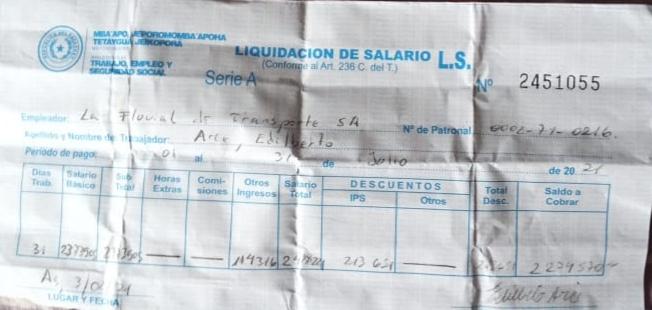 MBA'APO, JEPOROMOMBA'APOHA
TETAYGUA JEIKOPORÃ
TRABAJO, EMPLEO Y
SEGURIDAD SOCIAL
LIQUIDACION DE SALARIO L.S.
(Conforme al Art. 236 C. del T.)
Serie A
Nº 2451055
Empleador: La Fluvial de Transporte SA
Nº de Patronal: 0002-71-0216.
Apellido y Nombre de Trabajador: Arce, Edilberto
Periodo de pago: 01 al 31 de Julio de 20 21
Dias Trab. Salario Básico Sub Total Horas Extras Comisiones Otros Ingresos Salario Total DESCUENTOS IPS Otros Total Desc. Saldo a Cobrar
31 — — 114316 213 651 —
As,
LUGAR Y FECHA